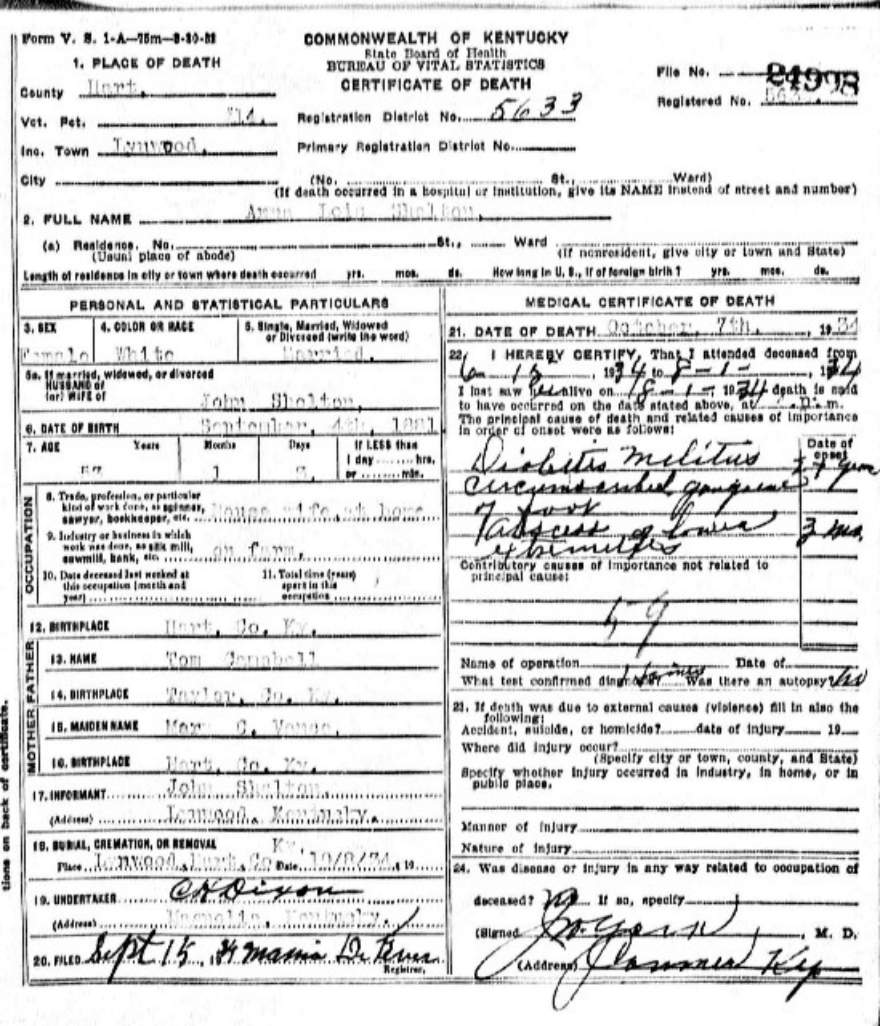 Form V. S. 1-A—75m—
COMMONWEALTH OF KENTUCKY
State Board of Health
BUREAU OF VITAL STATISTICS
CERTIFICATE OF DEATH
File No. 24998
Registered No.
1. PLACE OF DEATH
County Hart.
Vct. Pct.
Registration District No. 5633
Inc. Town Lynwood.
Primary Registration District No.
City (No. St., Ward)
(If death occurred in a hospital or institution, give its NAME instead of street and number)
2. FULL NAME Lois Shelton.
(a) Residence. No. St., Ward
(Usual place of abode) (If nonresident, give city or town and State)
Length of residence in city or town where death occurred yrs. mos. ds. How long in U. S., if of foreign birth? yrs. mos. ds.
PERSONAL AND STATISTICAL PARTICULARS
3. SEX
4. COLOR OR RACE
5. Single, Married, Widowed
or Divorced (write the word)
Female White Married.
5a. If married, widowed, or divorced
HUSBAND of
(or) WIFE of John Shelton.
6. DATE OF BIRTH September, 4th, 1881
7. AGE Years Months Days If LESS than
1 day hrs.
or min.
1
OCCUPATION
8. Trade, profession, or particular
kind of work done, as spinner,
sawyer, bookkeeper, etc. House wife, at home
9. Industry or business in which
work was done, as silk mill,
sawmill, bank, etc. on farm.
10. Date deceased last worked at
this occupation (month and
year)
11. Total time (years)
spent in this
occupation
12. BIRTHPLACE Hart. Co. Ky.
FATHER
13. NAME Tom Campbell
14. BIRTHPLACE Taylor. Co. Ky.
MOTHER
15. MAIDEN NAME Mary C.
16. BIRTHPLACE Hart. Co. Ky.
17. INFORMANT John Shelton.
(Address) Lynwood. Kentucky.
18. BURIAL, CREMATION, OR REMOVAL Ky.
Place Lynwood, Hart. Co. Date 10/8/34, 19
19. UNDERTAKER C H Dixon
(Address) Magnolia. Kentucky.
20. FILED Sept 15, 1934
Registrar.
MEDICAL CERTIFICATE OF DEATH
21. DATE OF DEATH October, 7th. , 1934
22. I HEREBY CERTIFY, That I attended deceased from
, 1934 to 8-1-, 1934
I last saw her alive on 8-1-, 1934 death is said
to have occurred on the date stated above, at m.
The principal cause of death and related causes of importance
in order of onset were as follows:
Date of
onset
Diabetis Melitus
gangrene
of foot
Abscess of lower
extremities 3 mo.
Contributory causes of importance not related to
principal cause:
59
Name of operation Date of
What test confirmed diagnosis? Was there an autopsy? No
23. If death was due to external causes (violence) fill in also the
following:
Accident, suicide, or homicide? date of injury 19
Where did injury occur?
(Specify city or town, county, and State)
Specify whether injury occurred in industry, in home, or in
public place.
Manner of injury
Nature of injury
24. Was disease or injury in any way related to occupation of
deceased? no If so, specify
(Signed) , M. D.
(Address)
tions on back of certificate.